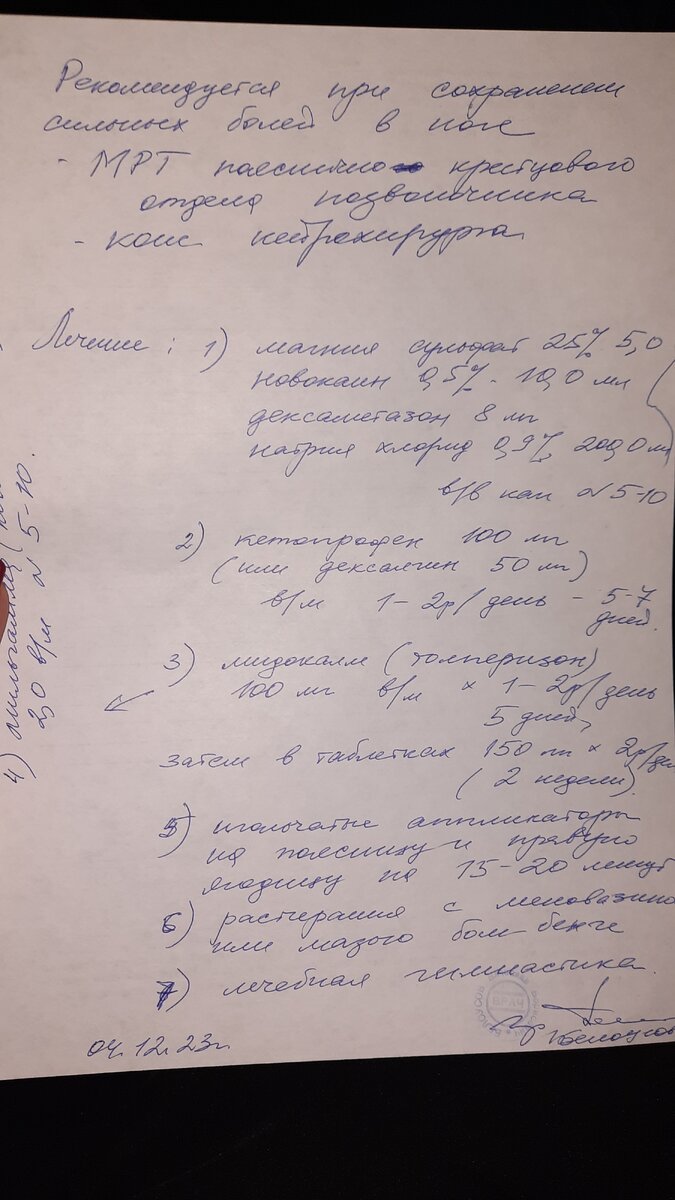 Рекомендуется при сохранении
сильных болей в ноге
- МРТ пояснично крестцового
отдела позвоночника
- конс нейрохирурга
Лечение: 1) магния сульфат 25% 5,0
новокаин 0,5% - 10,0 мл
дексаметазон 8 мг
натрия хлорид 0,9% 200,0 мл
в/в кап N 5-10
2) кетопрофен 100 мг
(или дексалгин 50 мг)
в/м 1-2р/день - 5-7
дней.
3) мидокалм (толперизон)
100 мг в/м x 1-2р/день
5 дней,
затем в таблетках 150 мг x 2р/де
(2 недели).
4) мильгамма (
2,0 в/м N 5-10.
5) игольчатые аппликаторы
на поясницу и правую
ягодицу на 15-20 минут
6) растирания с меновазино
или мазью бом-бенге
7) лечебная гимнастика.
ВРАЧ
04.12.23г.